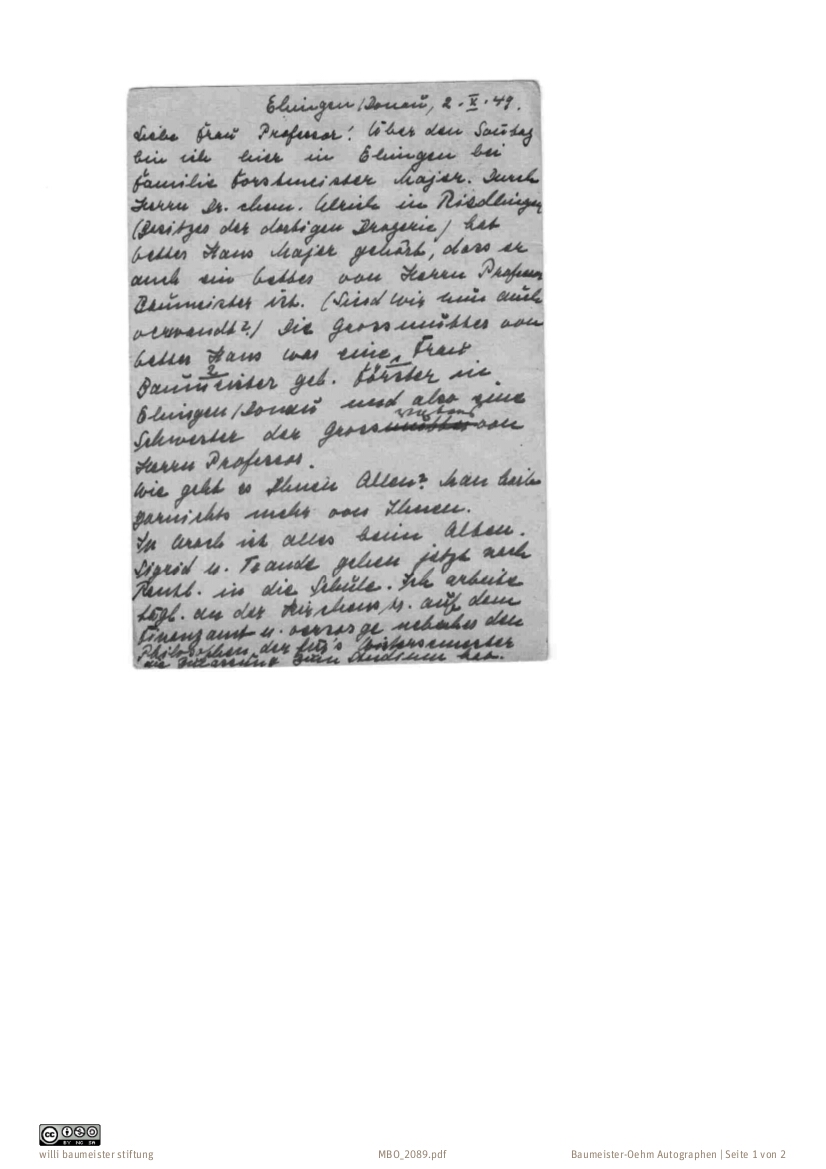 Ehingen/Donau, 2.X.49.
Liebe Frau Professor! Über den Sonntag
bin ich hier in Ehingen bei
Familie Forstmeister Majer. Durch
Herrn Dr. chem. Ulrich in Riedlingen
(Besitzer der dortigen Drogerie) hat
Vetter Hans Majer gehört, dass er
auch ein Vetter von Herrn Professor
Baumeister ist. (Sind wir nun auch
verwandt?) Die Grossmutter von
Vetter Hans war eine Frau
Baumeister geb. Förster in
Ehingen/Donau und also eine
Schwester der Gross von
Herrn Professor.
Wie geht es Ihnen Allen? Man
garnichts mehr von Ihnen.
In Urach ist alles beim Alten.
Sigrid u. Traude gehen jetzt nach
Reutl. in die Schule. Ich arbeite
tägl. an der u. auf dem
Finanzamt u. versorge nebenher den
Philosophen, der für's Wintersemester
die Zulassung zum Studium hat.
willi baumeister stiftung
MBO_2089.pdf
Baumeister-Oehm Autographen | Seite 1 von 2
CC BY NC SA